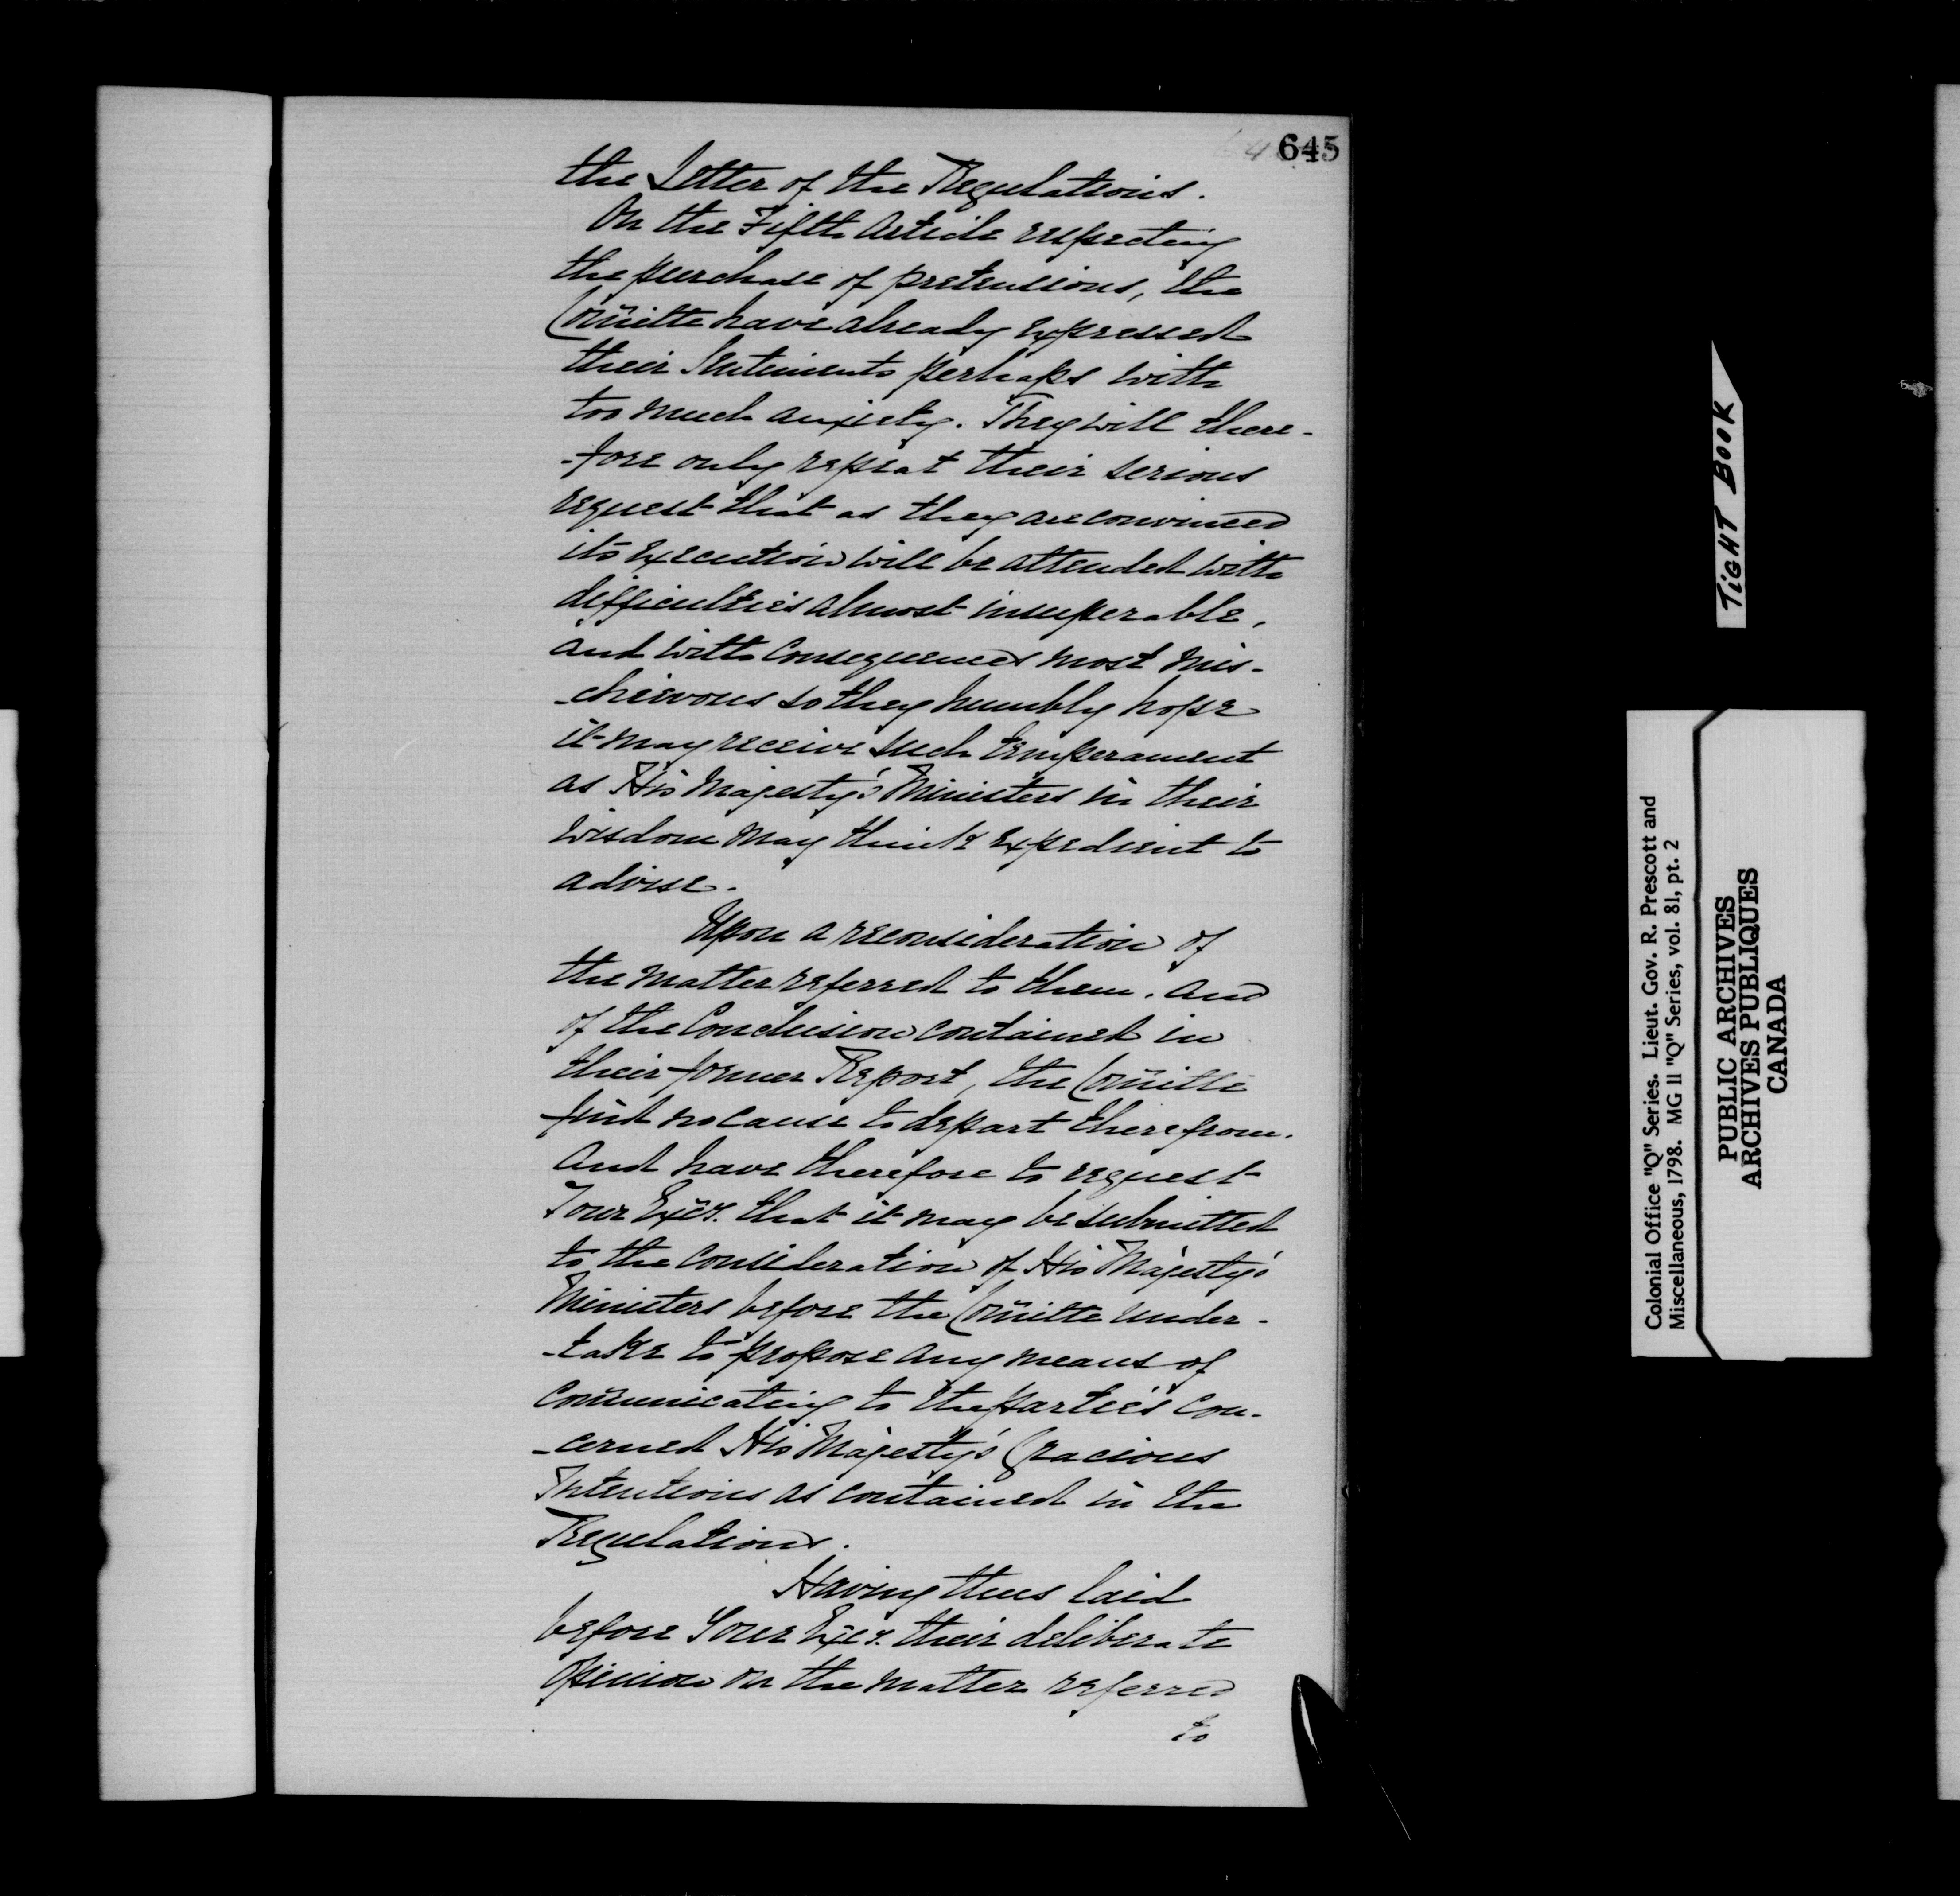 645
the Letter of the Regulations.
On the Fifth Article respecting
the purchase of pretensions, the
Com̃itte have already expressed
their Sentiments perhaps with
too much anxiety. They will there-
-fore only repeat their serious
request that as they are convinced
its execution will be attended with
difficulties almost insuperable,
and with Consequences most mis-
-chievous so they humbly hope
it may receive such temperament
as His Majesty's Ministers in their
wisdom may think expedient to
advise.
Upon a reconsideration of
the matter referred to them, and
of the Conclusion contained in
their former Report, the Com̃itte
find no cause to depart therefrom.
And have therefore to request
Your Excy. that it may be submitted
to the consideration of His Majesty's
Ministers before the Com̃itte under-
-take to propose any means of
com̃unicating to the parties con-
-cerned His Majesty's Gracious
Intentions as contained in the
Regulations.
Having thus laid
before Your Excy. their deliberate
opinion on the matter referred
to
TIGHT BOOK
Colonial Office "Q" Series. Lieut. Gov. R. Prescott and
Miscellaneous, 1798. MG 11 "Q" Series, vol. 81, pt. 2
PUBLIC ARCHIVES
ARCHIVES PUBLIQUES
CANADA